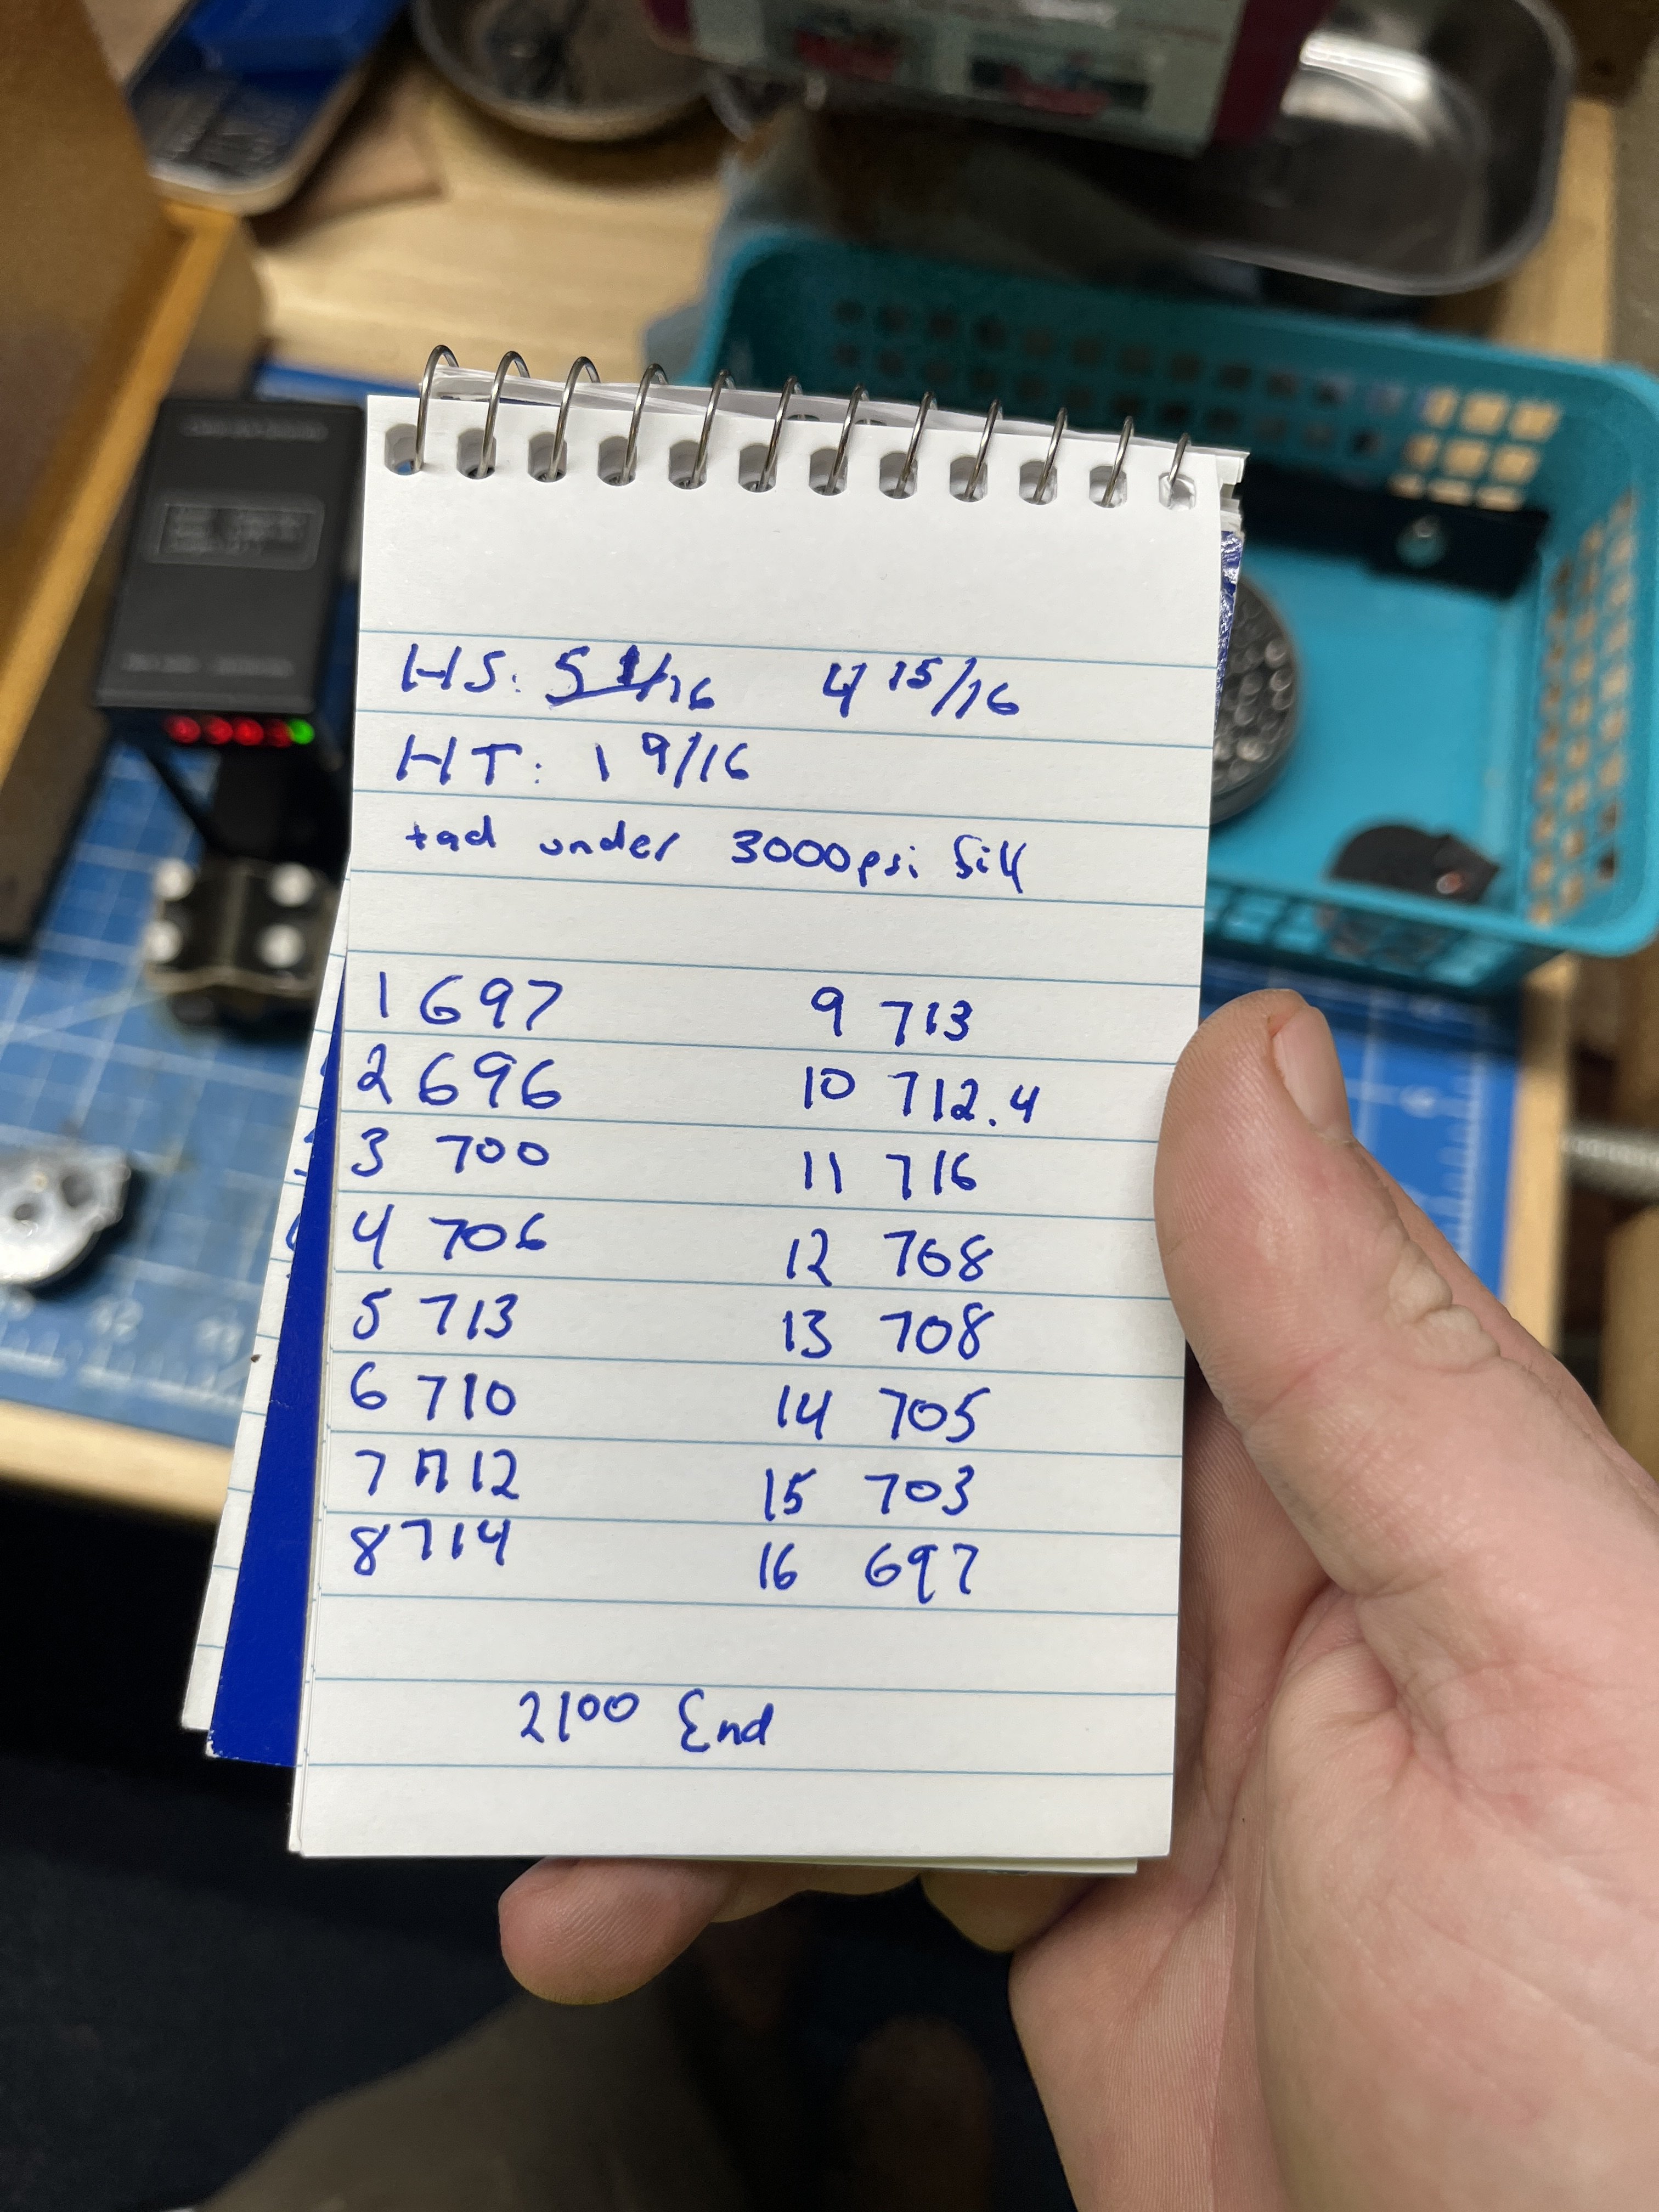 HS: 5 1/16 4 15/16
HT: 1 9/16
tad under 3000psi fill
1 697
2 696
3 700
4 706
5 713
6 710
7 712
8 714
9 713
10 712.4
11 716
12 708
13 708
14 705
15 703
16 697
2100 End